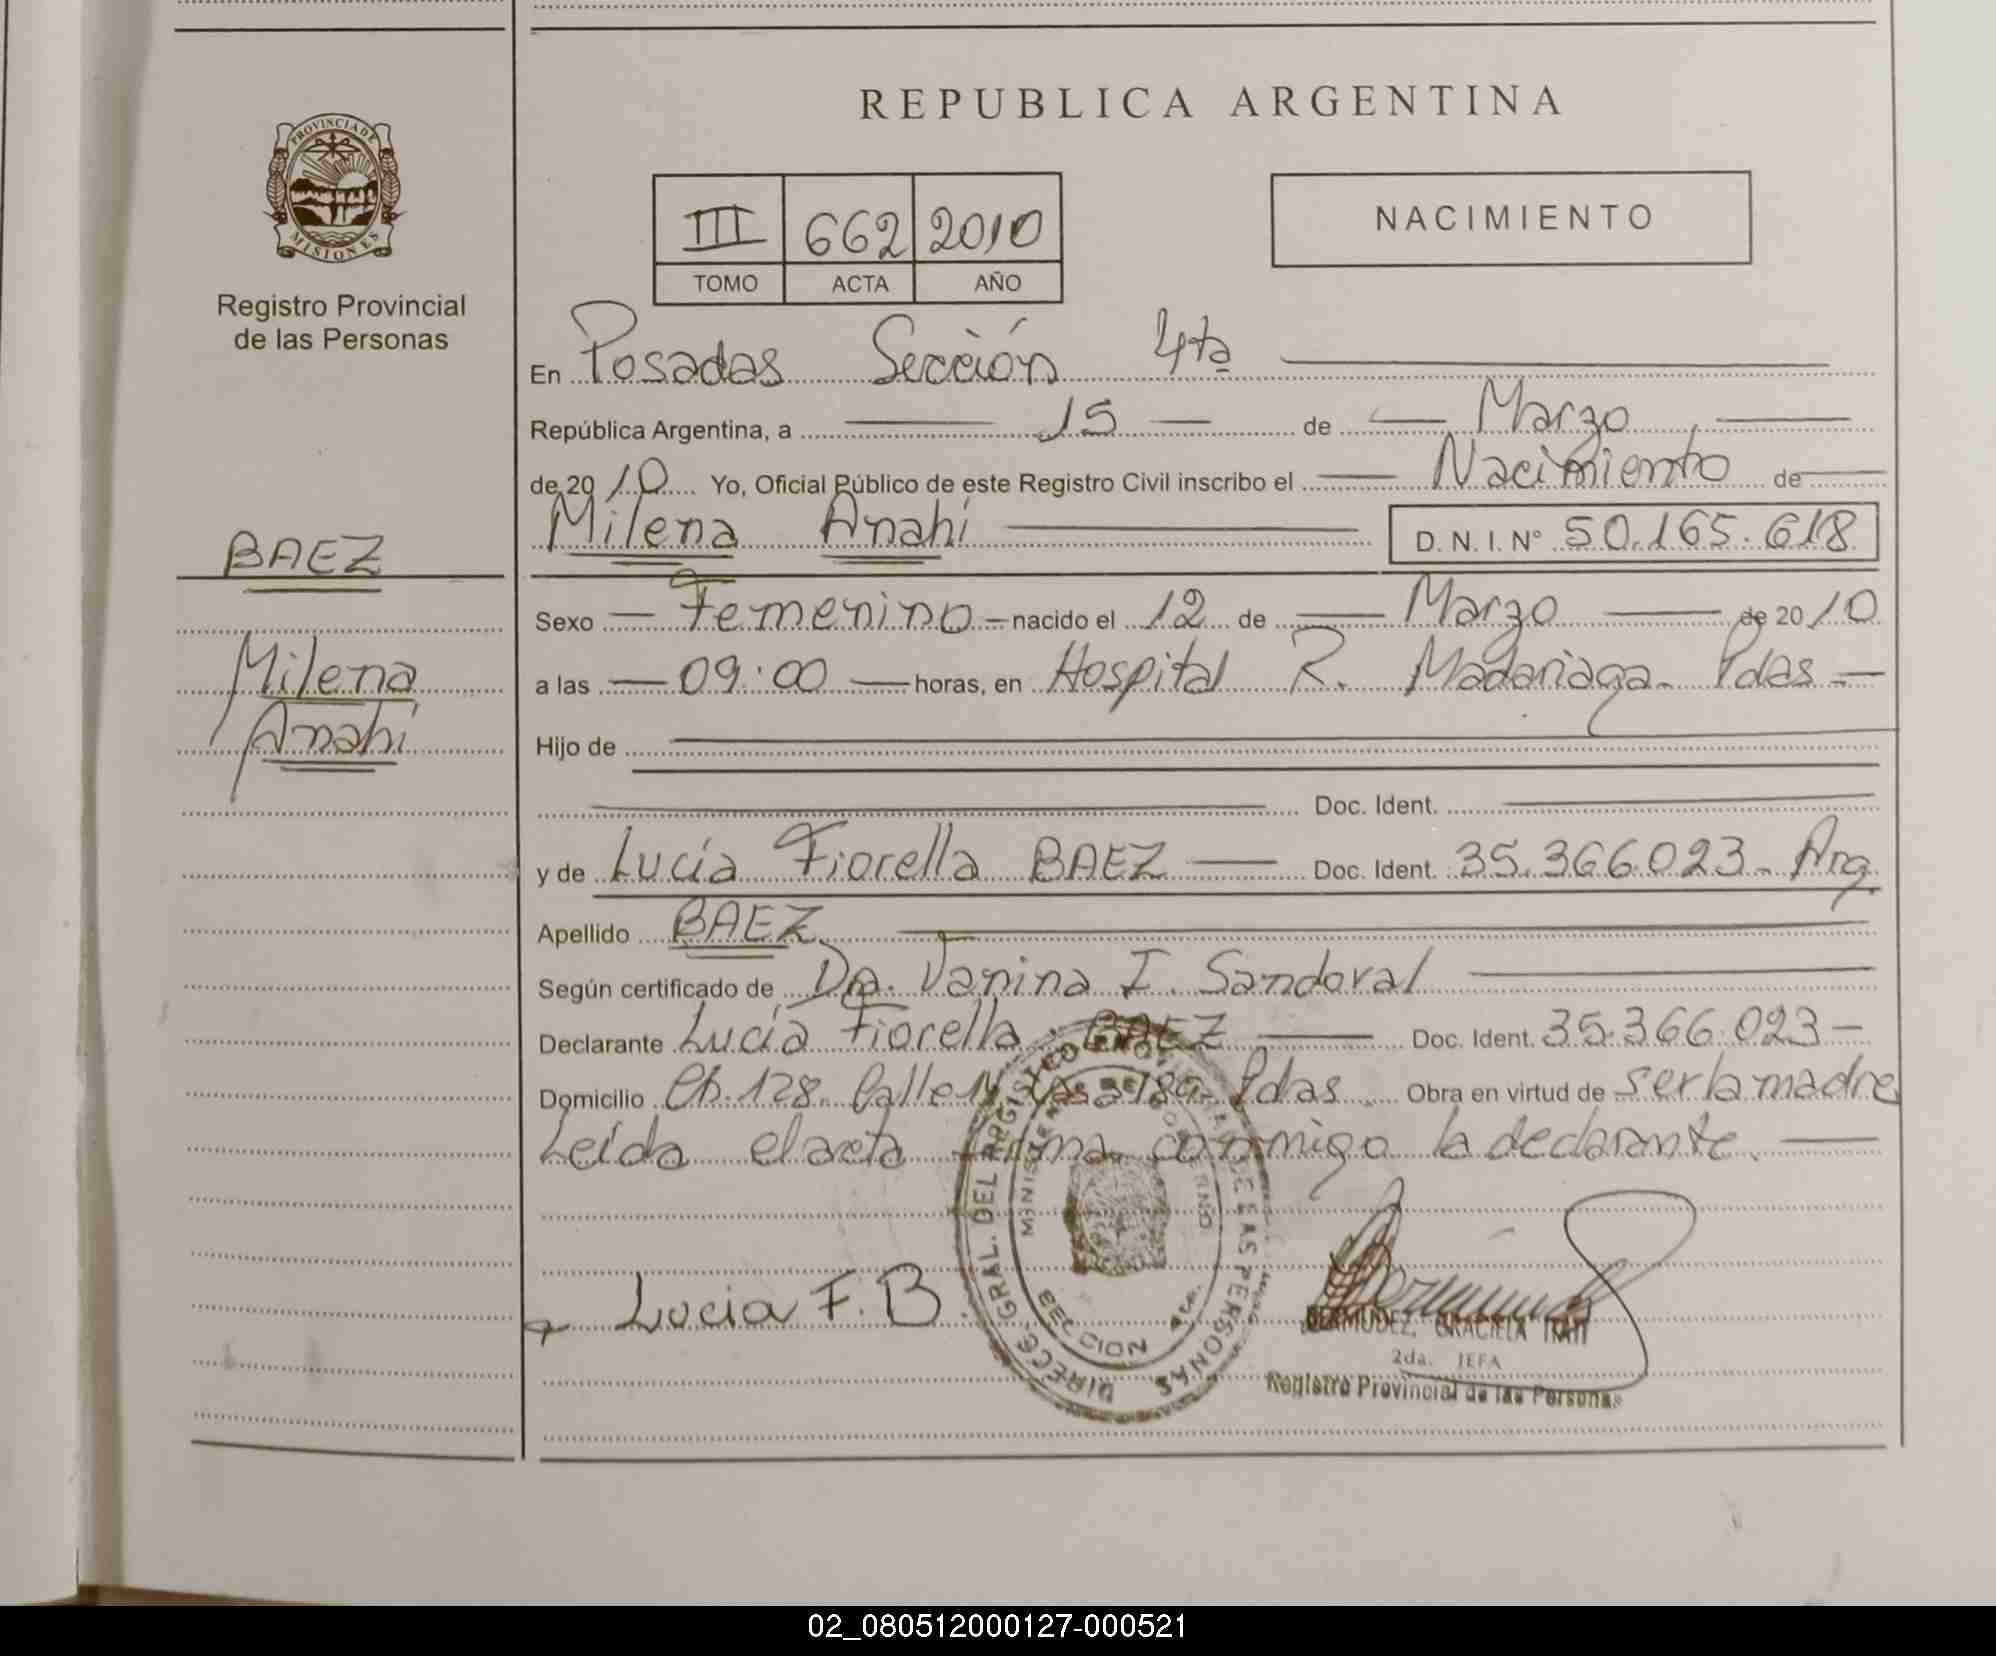 REPUBLICA ARGENTINA
PROVINCIA DE
MISIONES
Registro Provincial
de las Personas
III 662 2010
TOMO ACTA AÑO
NACIMIENTO
En Posadas Sección 4ta
República Argentina, a 15 de Marzo
de 2010 Yo, Oficial Público de este Registro Civil inscribo el Nacimiento de
Milena Anahí D. N. I. Nº 50.165.618
BAEZ
Milena
Anahí
Sexo Femenino nacido el 12 de Marzo de 2010
a las 09:00 horas, en Hospital R. Madariaga. Pdas
Hijo de
Doc. Ident.
y de Lucía Fiorella BAEZ Doc. Ident. 35.366.023 - Arg.
Apellido BAEZ
Según certificado de Dra. Vanina I. Sandoval
Declarante Lucía Fiorella BAEZ Doc. Ident. 35.366.023
Domicilio Ch. 128. Calle Pdas Obra en virtud de ser la madre
Leída el acta firma conmigo la declarante.
Lucia F. B
DIRECC. GRAL. DEL REGISTRO DE LAS PERSONAS
BERMUDEZ, GRACIELA ITATI
2da. JEFA
Registro Provincial de las Personas
02_080512000127-000521